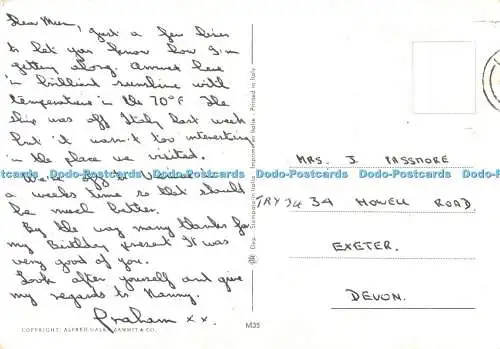 Dear Mum, just a few lines
to let you know how I'm
getting along. Arrived here
in brilliant sunshine with
temperature in the 70°F. The
ship was off Italy last week
but it wasn't too interesting
in the place we visited.
We're off to
a weeks time so that should
be much better.
By the way many thanks for
my Birthday present It was
very good of you.
Look after yourself and give
my regards to Nanny.
Graham x x.
COPYRIGHT: ALFRED GALEA ZAMMIT & CO.
M35
Dep. Stampato in Italia - Imprimé en Italie - Printed in Italy
MRS. J. PASSMORE
TRY 34 34 HOWELL ROAD,
EXETER.
DEVON.
Dodo-Postcards Dodo-Postcards Dodo-Postcards Dodo-Postcards Dodo-Postcards